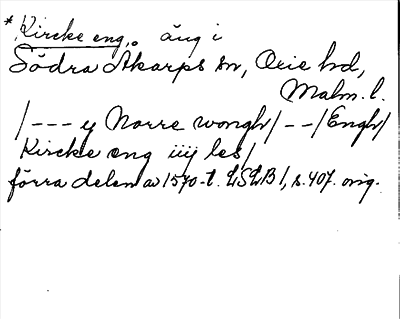 * Kircke eng, äng i
Södra Åkarps sn, Oxie hd,
Malm. l.
/--- y Norre wongh/--/Engh/
Kircke eng iiij les/
förra delen av 1570-t. LSLB 1, s. 407. orig.